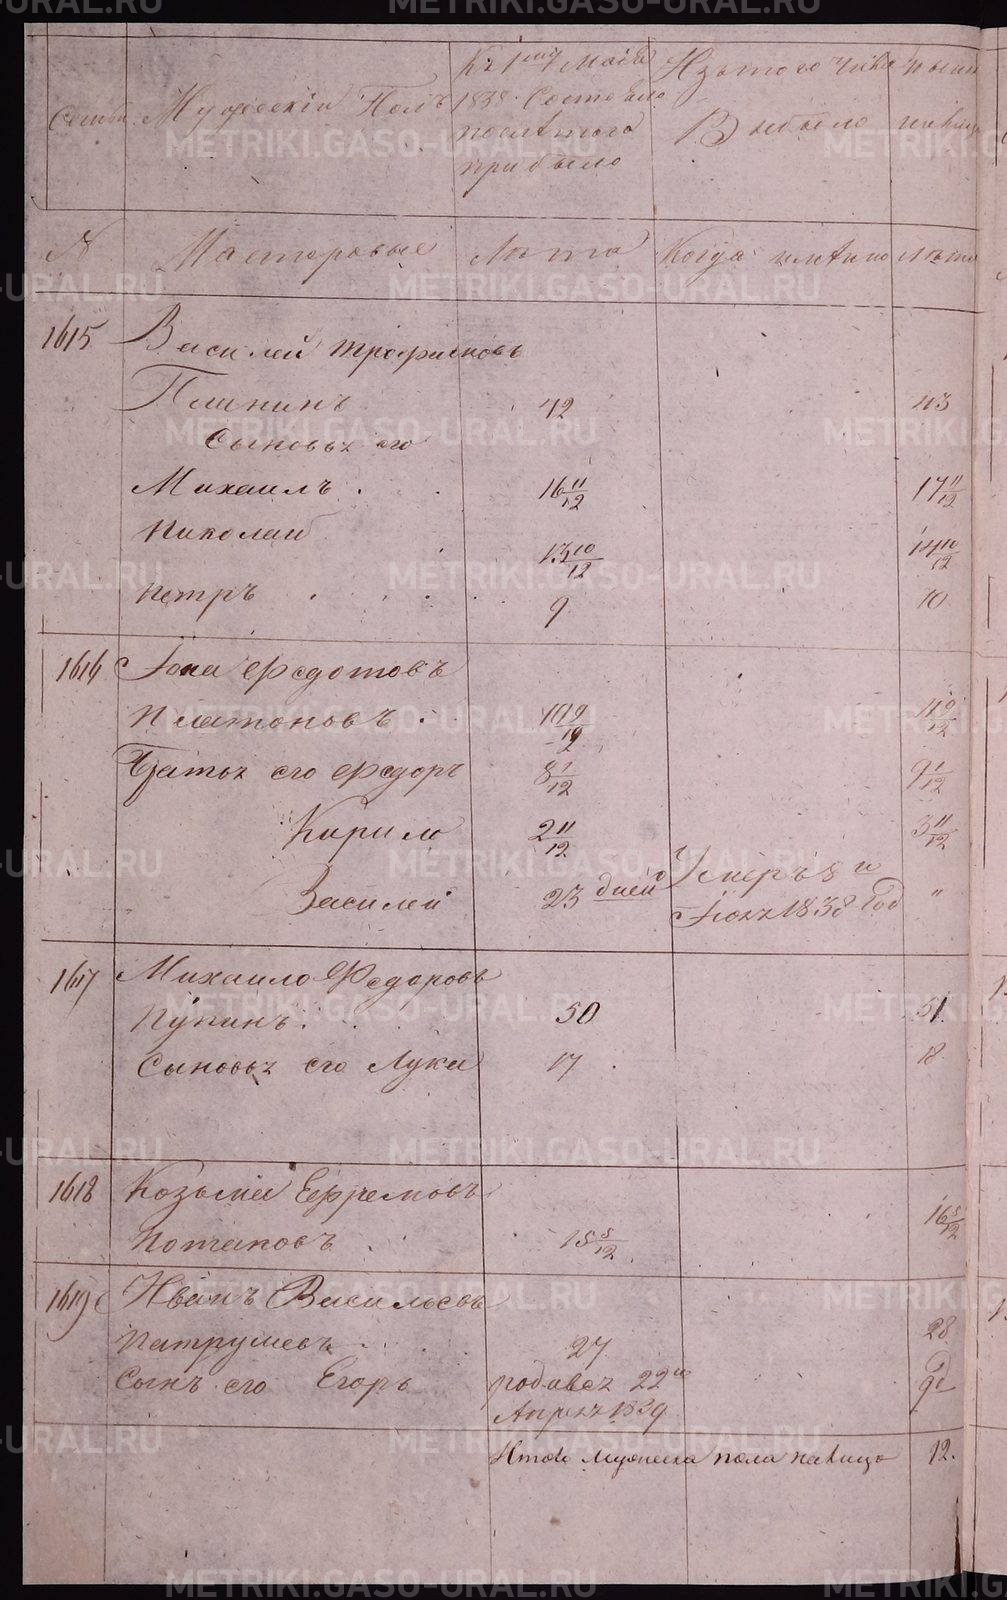 METRIKI.GASO-URAL.RU
Семьи Мужеский Полъ
Къ 1му Маія 1838 Состояло
послѣ того прибыло
Изъ того Числа Выбыло
ныне на лицо
№ Мастеровые Лѣта Когда именно Лѣта
1615 Василей Трофимовъ
Пшинъ 42 43
Сыновья его
Михаилъ . 16 11/12 17 11/12
Николай 13 10/12 14 10/12
Петръ 9 10
1616 Иона Федотовъ
Платоновъ . 10 9/12 11 9/12
Братья его Федоръ 8 1/12 9 1/12
Кирило 2 11/12 3 11/12
Василей 23 дней Умеръ 8 и
Іюля 1838 Год "
1617 Михаило Федоровъ
Пупинъ . 50 51
Сыновья его Лука 17 18
1618 Козьма Ефремовъ
Потаповъ . 15 5/12 16 5/12
1619 Иванъ Васильевъ
Патрушевъ 27 28
Сынъ его Егоръ родился 22го
Апреля 1839 9д
Итого мужеска пола на лицо 12.